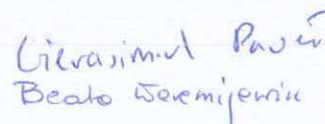 Gierasimiuk Paweł
Beata Weremijewicz